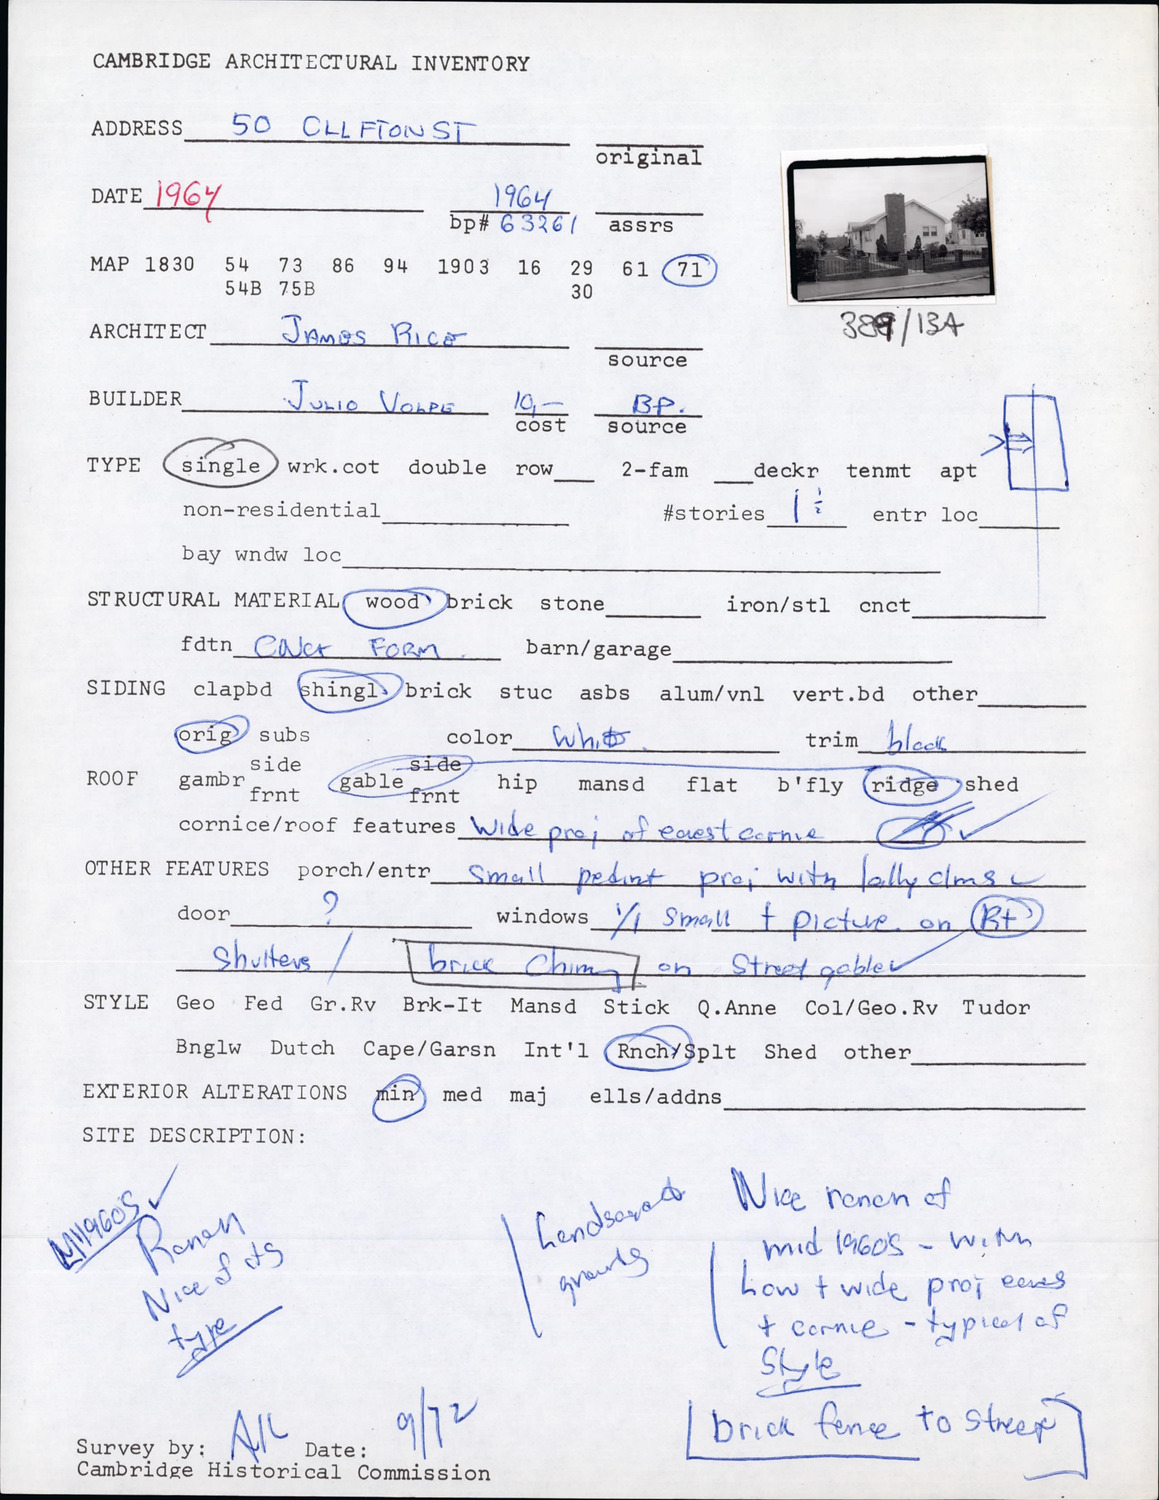 CAMBRIDGE ARCHITECTURAL INVENTORY
ADDRESS 50 CLLFTON ST
original
DATE 1964 1964
bp# 63261 assrs
MAP 1830 54 73 86 94 1903 16 29 61 71
54B 75B 30
389/13A
ARCHITECT JAMES RICE
source
BUILDER JULIO VOLPE 10,— BP.
cost source
TYPE single wrk.cot double row 2-fam deckr tenmt apt
non-residential #stories 1 1/2 entr loc
bay wndw loc
STRUCTURAL MATERIAL wood brick stone iron/stl cnct
fdtn CNCT FORM barn/garage
SIDING clapbd shingl brick stuc asbs alum/vnl vert.bd other
orig subs color white trim black
side side
ROOF gambr gable hip mansd flat b'fly ridge shed
frnt frnt
cornice/roof features Wide proj of eaves + cornice
OTHER FEATURES porch/entr Small pedint proj with lally clms
door ? windows 1/1 small + picture on Rt
Shutters / brick Chimy on Street gable
STYLE Geo Fed Gr.Rv Brk-It Mansd Stick Q.Anne Col/Geo.Rv Tudor
Bnglw Dutch Cape/Garsn Int'l Rnch/Splt Shed other
EXTERIOR ALTERATIONS min med maj ells/addns
SITE DESCRIPTION:
M1960's
Ranch
Nice of its
type
Landscaped
grounds
Nice ranch of
mid 1960's - with
Low + wide proj eaves
+ cornice - typical of
Style
brick fence to street
Survey by: AK Date: 9/72
Cambridge Historical Commission